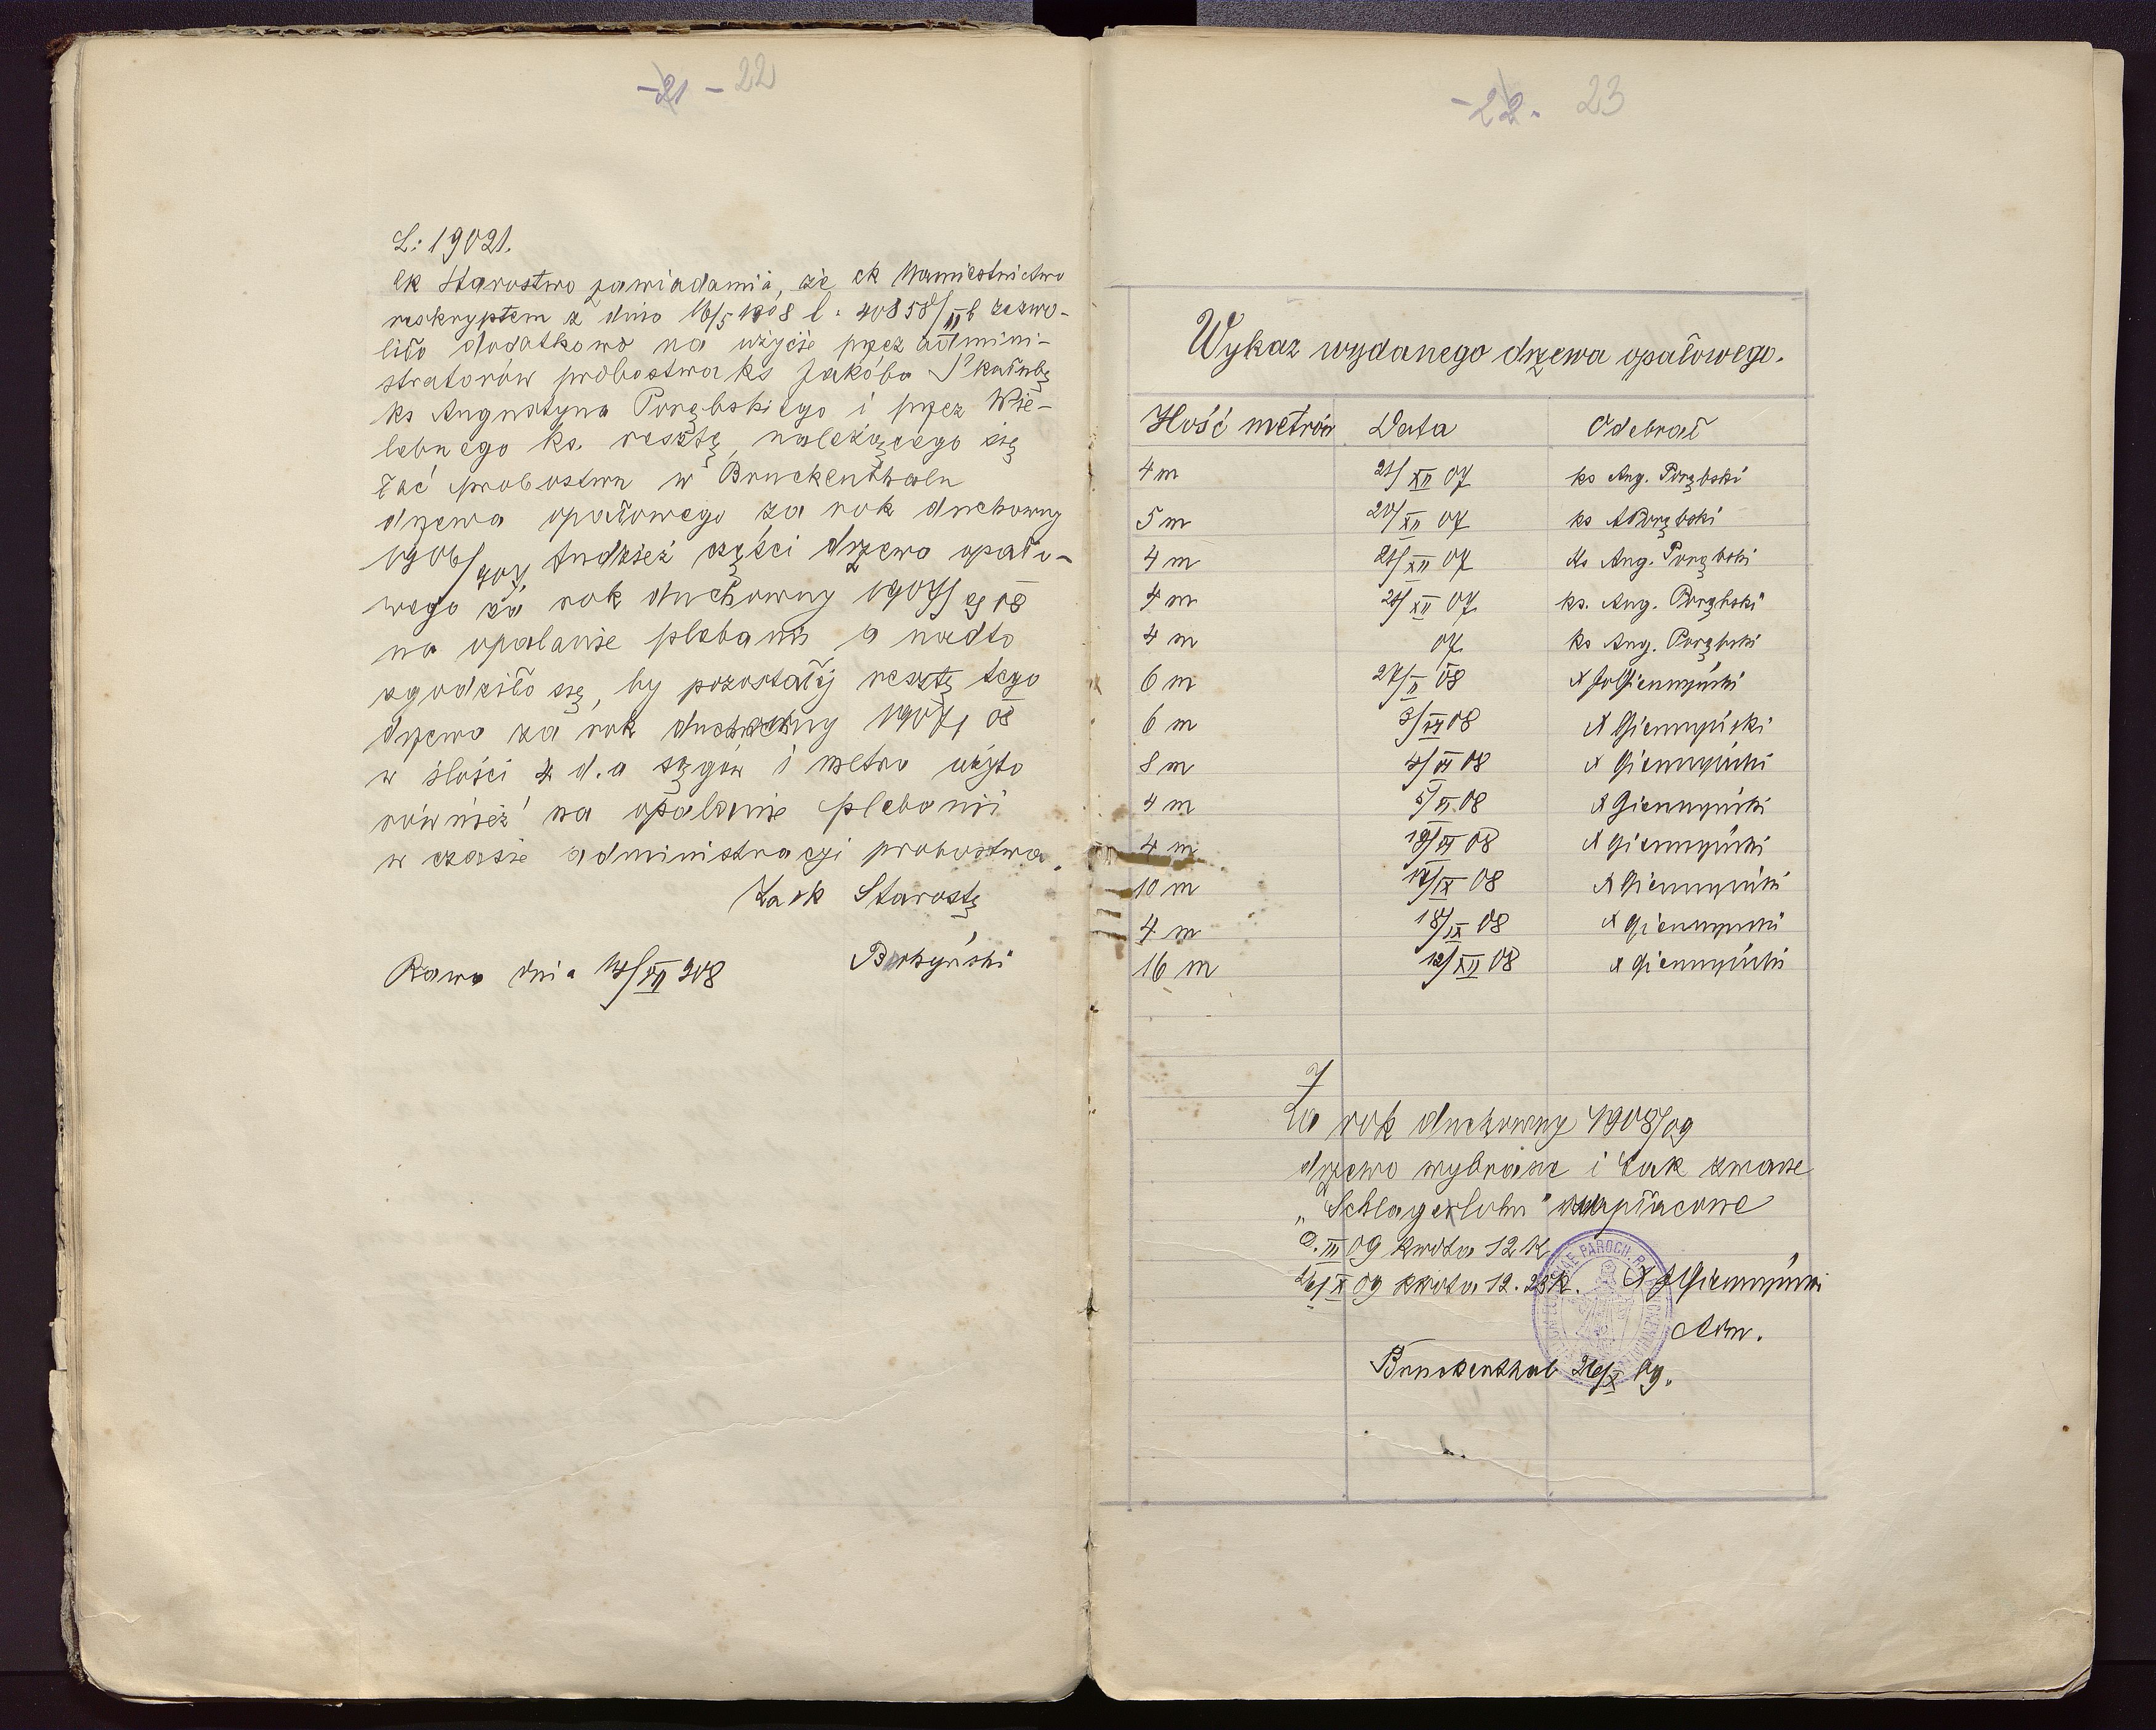 -21- 22
L: 19021.
ck Starostwo zawiadamia, że ck Namiestnictwo
reskryptem z dnia 16/5 1908 l. 40858/II b zezwo-
liło dodatkowo na użycie przez admini-
stratorów probostwa ks Jakóba Skałubę
ks Augustyna Porębskiego i przez Wie-
lebnego ks. resztę, należącego się
łać probostwu w Bruckenthalu
drzewa opałowego za rok duchowny
1906/907, tudzież części drzewa opało-
wego za rok duchowny 1907/908
na opalanie plebanii a nadto
zgodziło się, by pozostałej resztę tego
drzewa za rok duchowny 1907/08
w ilości 4 d.a sągów i metra użyto
również na opalanie plebanii
w czasie administracji probostwa.
Za ck Starostę
Rawa dnia 908
-22. 23
Wykaz wydanego drzewa opałowego.
Ilość metrów Data Odebrał
4 m 21/XII 07 ks Aug. Porębski
5 m 20/XII 07 ks APorębski
4 m 21/XII 07 ks Aug. Porębski
4 m 21/XII 07 ks. Aug. Porębski
4 m 07. ks Aug. Porębski
6 m 27/II 08 X
6 m 08 X
8 m 08 X
4 m 08 X
4 m 08 X
10 m /IX 08 X
4 m 18/IX 08 X
16 m 12/XII 08 X
Za rok duchowny 1908/09
drzewo wybrane i tak zwane
„Schlagerlohn" zapłacone
III 09 kwota 12 K
26/X 09 kwota 12. 28 K. X
Adm.
Bruckenthal 26/X 09.